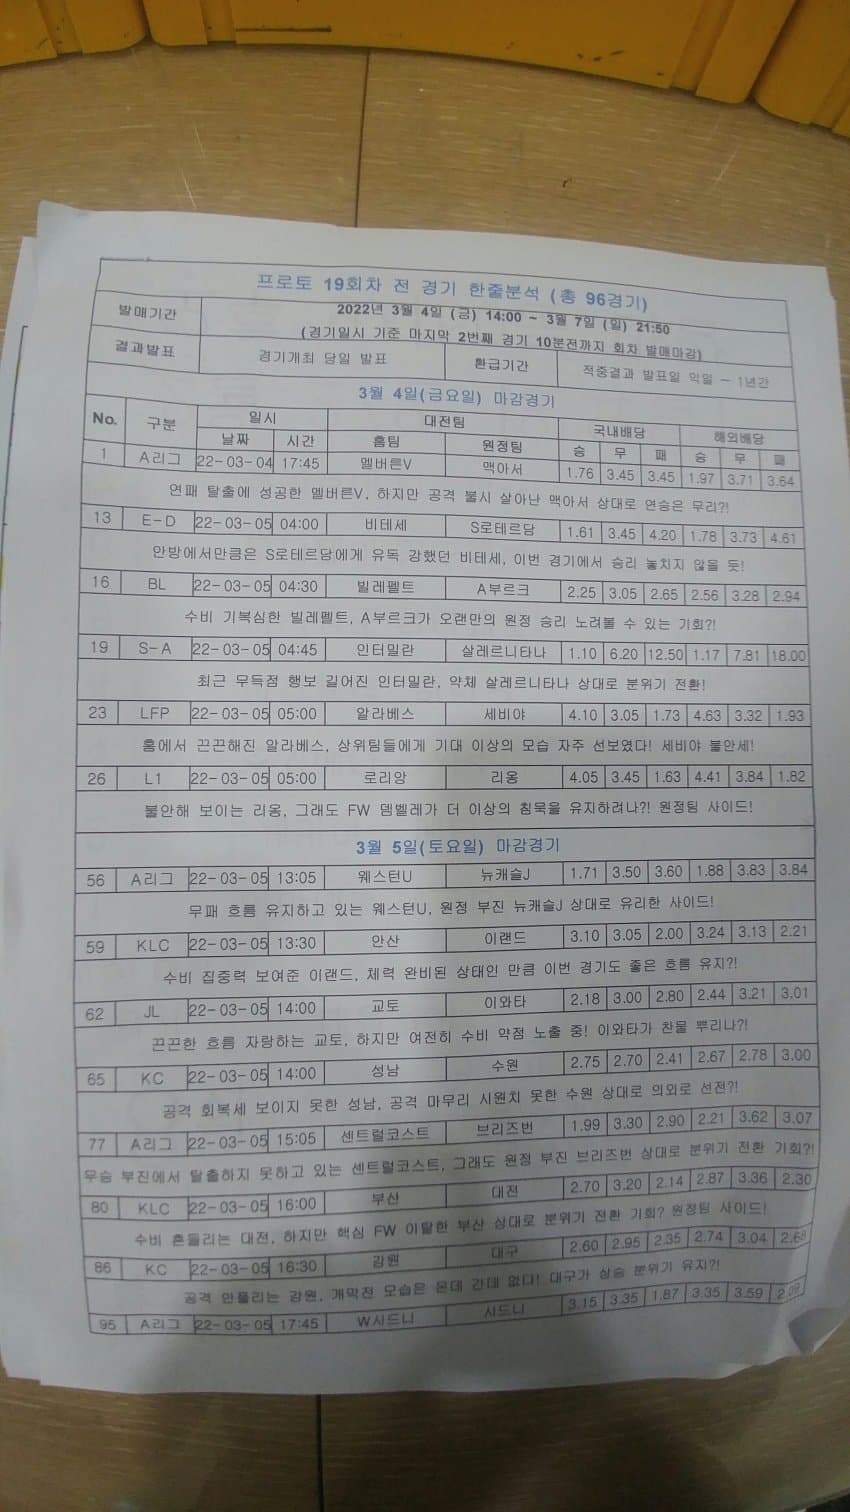 프로토 19회차 전 경기 한줄분석 (총 96경기)
발매기간 2022년 3월 4일 (금) 14:00 ~ 3월 7일 (일) 21:50
(경기일시 기준 마지막 2번째 경기 10분전까지 회차 발매마감)
결과발표 경기개최 당일 발표 환급기간 적중결과 발표일 익일 - 1년간
3월 4일(금요일) 마감경기
No. 구분 일시 대전팀 국내배당 해외배당
날짜 시간 홈팀 원정팀 승 무 패 승 무 패
1 A리그 22-03-04 17:45 멜버른V 맥아서 1.76 3.45 3.45 1.97 3.71 3.64
연패 탈출에 성공한 멜버른V, 하지만 공격 불시 살아난 맥아서 상대로 연승은 무리?!
13 E-D 22-03-05 04:00 비테세 S로테르담 1.61 3.45 4.20 1.78 3.73 4.61
안방에서만큼은 S로테르담에게 유독 강했던 비테세, 이번 경기에서 승리 놓치지 않을 듯!
16 BL 22-03-05 04:30 빌레펠트 A부르크 2.25 3.05 2.65 2.56 3.28 2.94
수비 기복심한 빌레펠트, A부르크가 오랜만의 원정 승리 노려볼 수 있는 기회?!
19 S-A 22-03-05 04:45 인터밀란 살레르니타나 1.10 6.20 12.50 1.17 7.81 18.00
최근 무득점 행보 길어진 인터밀란, 약체 살레르니타나 상대로 분위기 전환!
23 LFP 22-03-05 05:00 알라베스 세비야 4.10 3.05 1.73 4.63 3.32 1.93
홈에서 끈끈해진 알라베스, 상위팀들에게 기대 이상의 모습 자주 선보였다! 세비야 불안세!
26 L1 22-03-05 05:00 로리앙 리옹 4.05 3.45 1.63 4.41 3.84 1.82
불안해 보이는 리옹, 그래도 FW 뎀벨레가 더 이상의 침묵을 유지하려나?! 원정팀 사이드!
3월 5일(토요일) 마감경기
56 A리그 22-03-05 13:05 웨스턴U 뉴캐슬J 1.71 3.50 3.60 1.88 3.83 3.84
무패 흐름 유지하고 있는 웨스턴U, 원정 부진 뉴캐슬J 상대로 유리한 사이드!
59 KLC 22-03-05 13:30 안산 이랜드 3.10 3.05 2.00 3.24 3.13 2.21
수비 집중력 보여준 이랜드, 체력 완비된 상태인 만큼 이번 경기도 좋은 흐름 유지?!
62 JL 22-03-05 14:00 교토 이와타 2.18 3.00 2.80 2.44 3.21 3.01
끈끈한 흐름 자랑하는 교토, 하지만 여전히 수비 약점 노출 중! 이와타가 찬물 뿌리나?!
65 KC 22-03-05 14:00 성남 수원 2.75 2.70 2.41 2.67 2.78 3.00
공격 회복세 보이지 못한 성남, 공격 마무리 시원치 못한 수원 상대로 의외로 선전?!
77 A리그 22-03-05 15:05 센트럴코스트 브리즈번 1.99 3.30 2.90 2.21 3.62 3.07
무승 부진에서 탈출하지 못하고 있는 센트럴코스트, 그래도 원정 부진 브리즈번 상대로 분위기 전환 기회?!
80 KLC 22-03-05 16:00 부산 대전 2.70 3.20 2.14 2.87 3.36 2.30
수비 흔들리는 대전, 하지만 핵심 FW 이탈한 부산 상대로 분위기 전환 기회? 원정팀 사이드!
86 KC 22-03-05 16:30 강원 대구 2.60 2.95 2.35 2.74 3.04 2.68
공격 안풀리는 강원, 개막전 모습은 온데 간데 없다! 대구가 상승 분위기 유지?!
95 A리그 22-03-05 17:45 W시드니 시드니 3.15 3.35 1.87 3.35 3.59 2.09